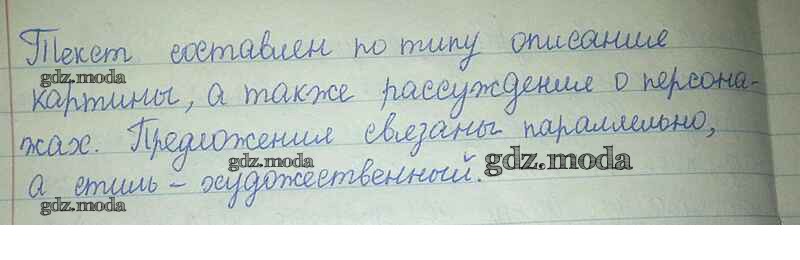 Текст составлен по типу описание
gdz.moda
картины, а также рассуждение о персона-
жах. Предложения связаны параллельно,
gdz.moda gdz.moda
а стиль - художественный.
gdz.moda